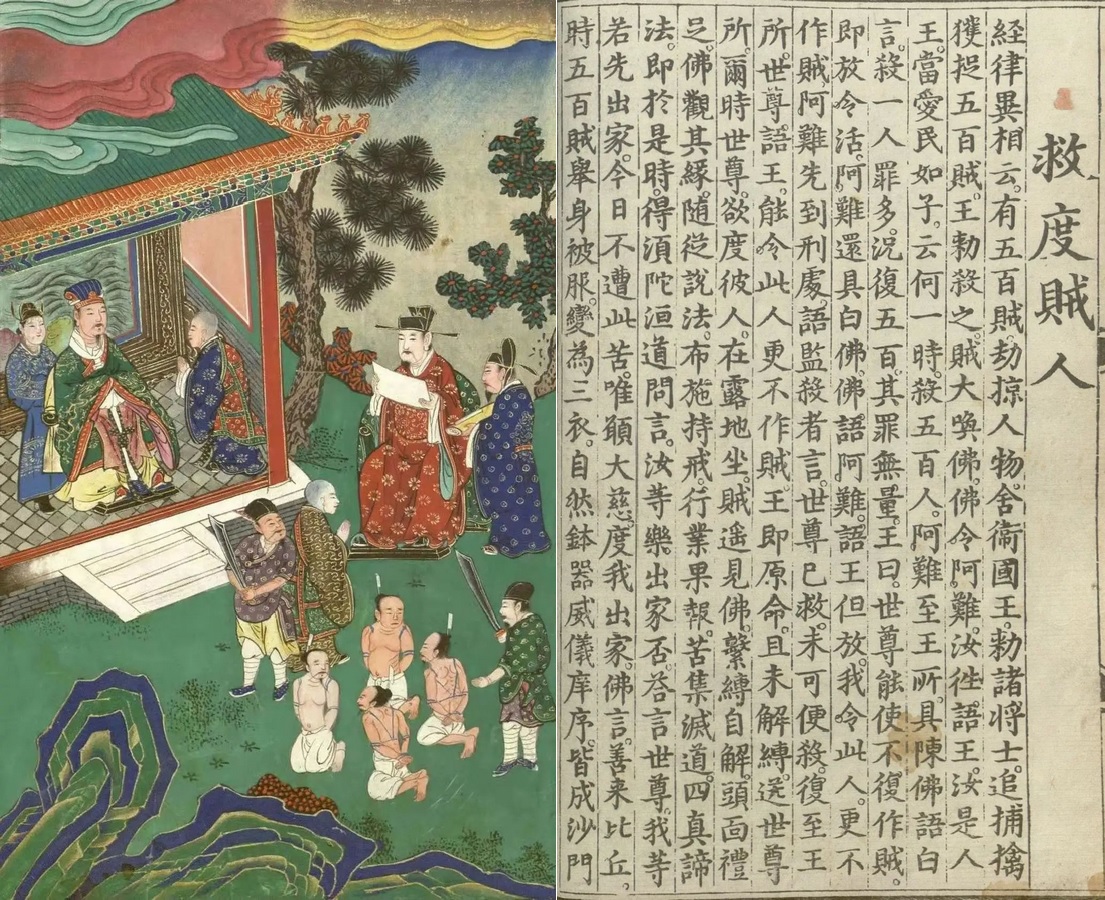 救度賊人
経律異相云。有五百賊。劫掠人物。舍衞國王。勑諸将士。追捕擒
獲捉五百賊。王勑殺之。賊大喚佛。佛令阿難。汝徃語王。汝是人
王。當愛民如子。云何一時。殺五百人。阿難至王所。具陳佛語白
言。殺一人罪多。況復五百其罪無量。王曰。世尊能使不復作賊。
即放令活。阿難還具白佛。佛語阿難。語王但放。我令此人。更不
作賊。阿難先到刑處。語監殺者言。世尊已救。未可便殺。復至王
所。世尊語王。能令此人更不作賊。王即原命。且未解縛。送世尊
所。爾時世尊。欲度彼人。在露地坐。賊遥見佛。繫縛自解。頭面禮
足。佛觀其緣。隨從說法。布施持戒。行業果報。苦集滅道。四真諦
法。即於是時。得湏陀洹道。問言。汝等樂出家否。荅言世尊。我等
若先出家。今日不遭此苦。唯願大慈。度我出家。佛言。善来比丘。
時五百賊。舉身被服。變為三衣。自然鉢器。威儀庠序。皆成沙門